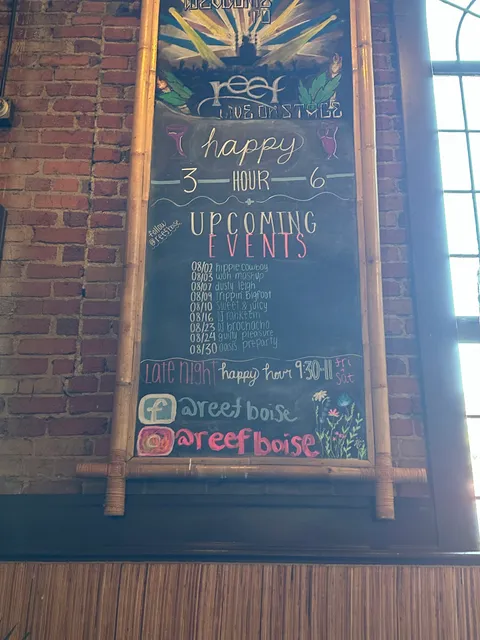 WELCOME
TO
reef
LIVE ON STAGE
happy
3 HOUR 6
follow
@reefboise
UPCOMING
EVENTS
08/02 hippie cowboy
08/03 woh mashup
08/07 dusty leigh
08/09 trippin Bigfoot
08/10 sweet & juicy
08/16 dj
08/23 DJ brochacho
08/24 guilty pleasure
08/30 oasis pre-party
LATE NIGHT happy hour 9:30-11 fri
sat
f @reef boise
@reef boise